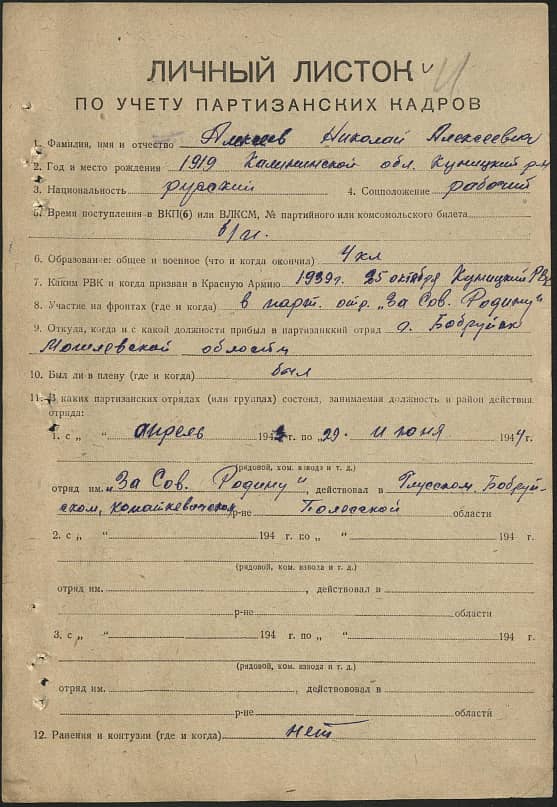 ЛИЧНЫЙ ЛИСТОК
ПО УЧЕТУ ПАРТИЗАНСКИХ КАДРОВ
1. Фамилия, имя и отчество Алексеев Николай Алексеевич
2. Год и место рождения 1919 Калининской обл. Куницкий р-н
3. Национальность русский 4. Соцположение рабочий
5. Время поступления в ВКП(б) или ВЛКСМ, № партийного или комсомольского билета
б/п.
6. Образование: общее и военное (что и когда окончил) 4 кл
7. Каким РВК и когда призван в Красную Армию 1939г. 25 октября Куницкий РВК
8. Участие на фронтах (где и когда) в парт. отр. „За Сов. Родину"
9. Откуда, когда и с какой должности прибыл в партизанкий отряд г. Бобруйск
Могилевской области
10. Был ли в плену (где и когда) был
11. В каких партизанских отрядах (или группах) состоял, занимаемая должность и район действия
отряда:
1. с „ " апрель 1943 г. по „29" июня 1944 г.
(рядовой, ком. взвода и т. д.)
отряд им. „За Сов. Родину", действовал в Глусском, Бобруй-
ском, р-не Полесской области
2. с „ " 194 г. по „ " 194 г.
(рядовой, ком. взвода и т. д.)
отряд им. , действовал в
р-не области
3. с „ " 194 г. по „ " 194 г.
(рядовой, ком. взвода и т. д.)
отряд им. , действовал в
р-не области
12. Ранения и контузии (где и когда) нет